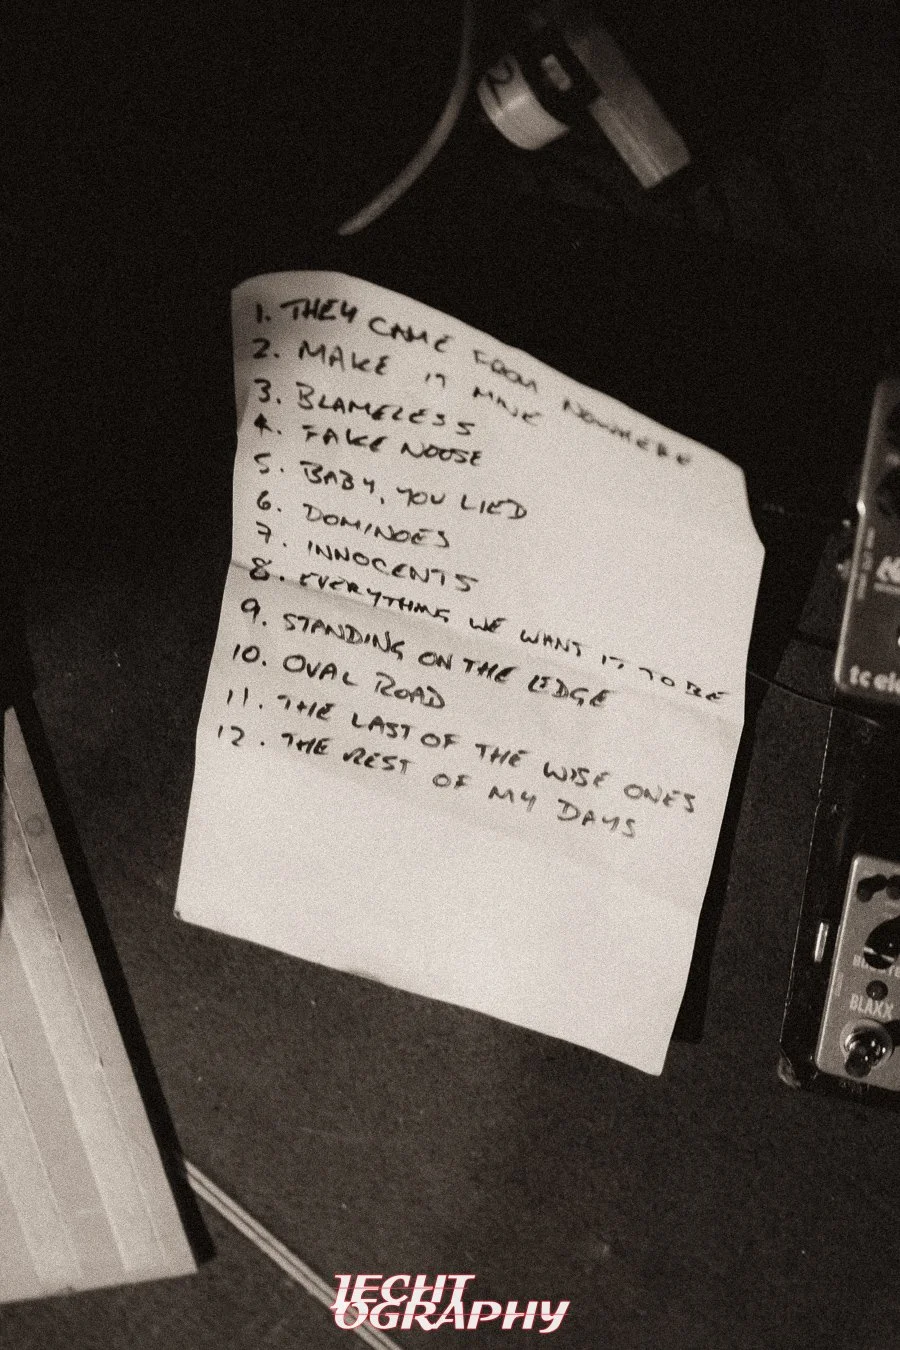 2
1. THEY CAME FROM NOWHERE
2. MAKE IT MINE
3. BLAMELESS
4. FAKE NOOSE
5. BABY, YOU LIED
6. DOMINOES
7. INNOCENTS
8. EVERYTHING WE WANT IT TO BE
9. STANDING ON THE LEDGE
10. OVAL ROAD
11. THE LAST OF THE WISE ONES
12. THE REST OF MY DAYS
tc ele
BLAXX
JECHT
OGRAPHY